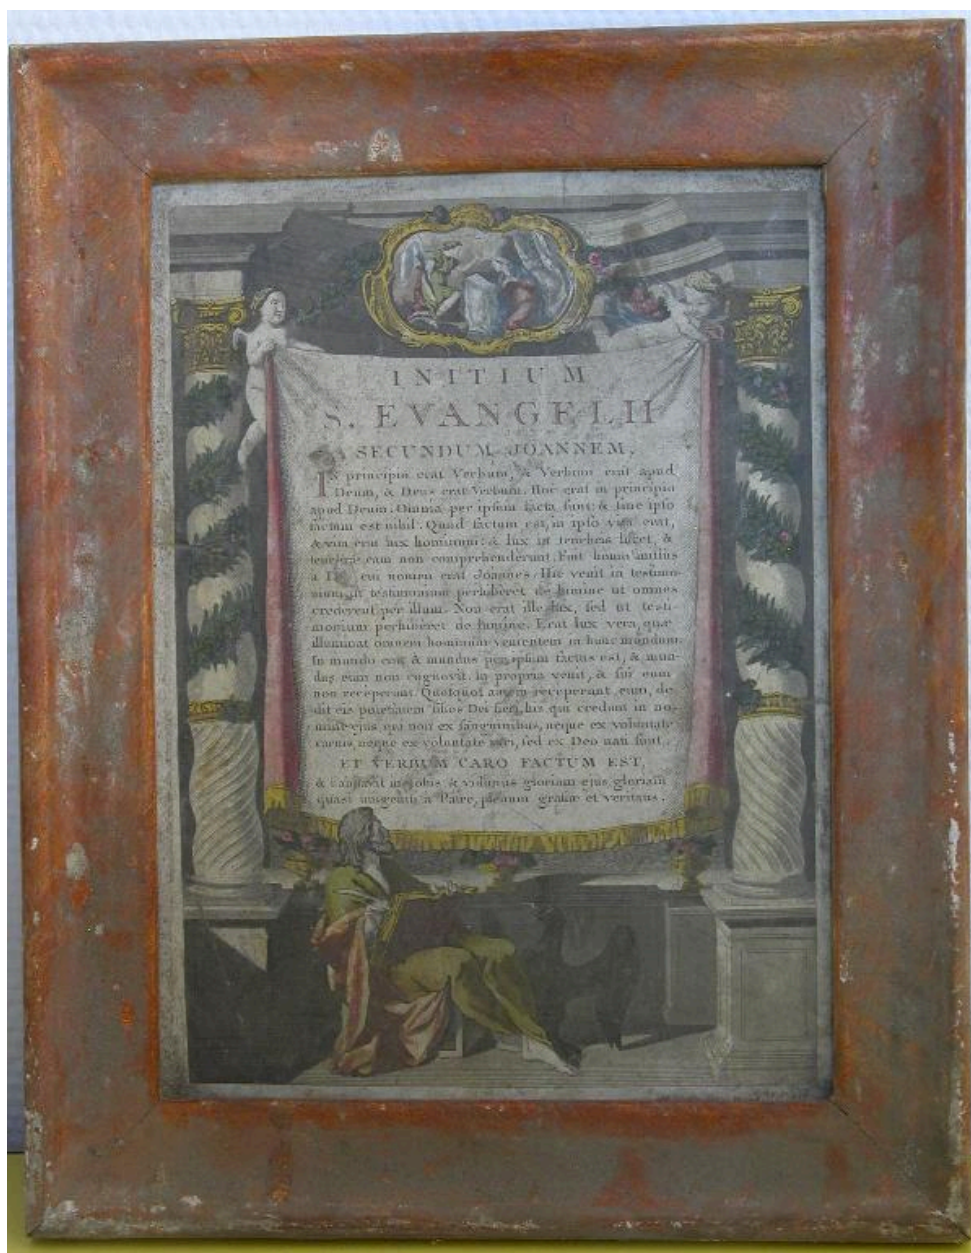 INITIUM
S. EVANGELII
SECUNDUM JOANNEM,
IN principio erat Verbum, & Verbum erat apud
Deum, & Deus erat Verbum. Hoc erat in principio
apud Deum. Omnia per ipsum facta sunt: & sine ipso
factum est nihil. Quod factum est, in ipso vita erat,
& vita erat lux hominum: & lux in tenebris lucet, &
tenebræ eam non comprehenderunt. Fuit homo missus
a cui nomen erat Joannes. Hic venit in testimo-
nium, ut testimonium perhiberet de lumine ut omnes
crederent per illum. Non erat ille lux, sed ut testi-
monium perhiberet de lumine. Erat lux vera, quæ
illuminat omnem hominem venientem in hunc mundum.
In mundo erat & mundus per ipsum factus est, & mun-
dus eum non cognovit. In propria venit, & sui eum
non receperunt. Quotquot autem receperunt eum, de-
dit eis potestatem filios Dei fieri, his qui credunt in no-
mine ejus qui non ex sanguinibus, neque ex voluntate
carnis, neque ex voluntate viri, sed ex Deo nati sunt.
ET VERBUM CARO FACTUM EST,
& habitavit in nobis & vidimus gloriam ejus gloriam
quasi unigeniti a Patre, plenum gratiæ et veritatis.